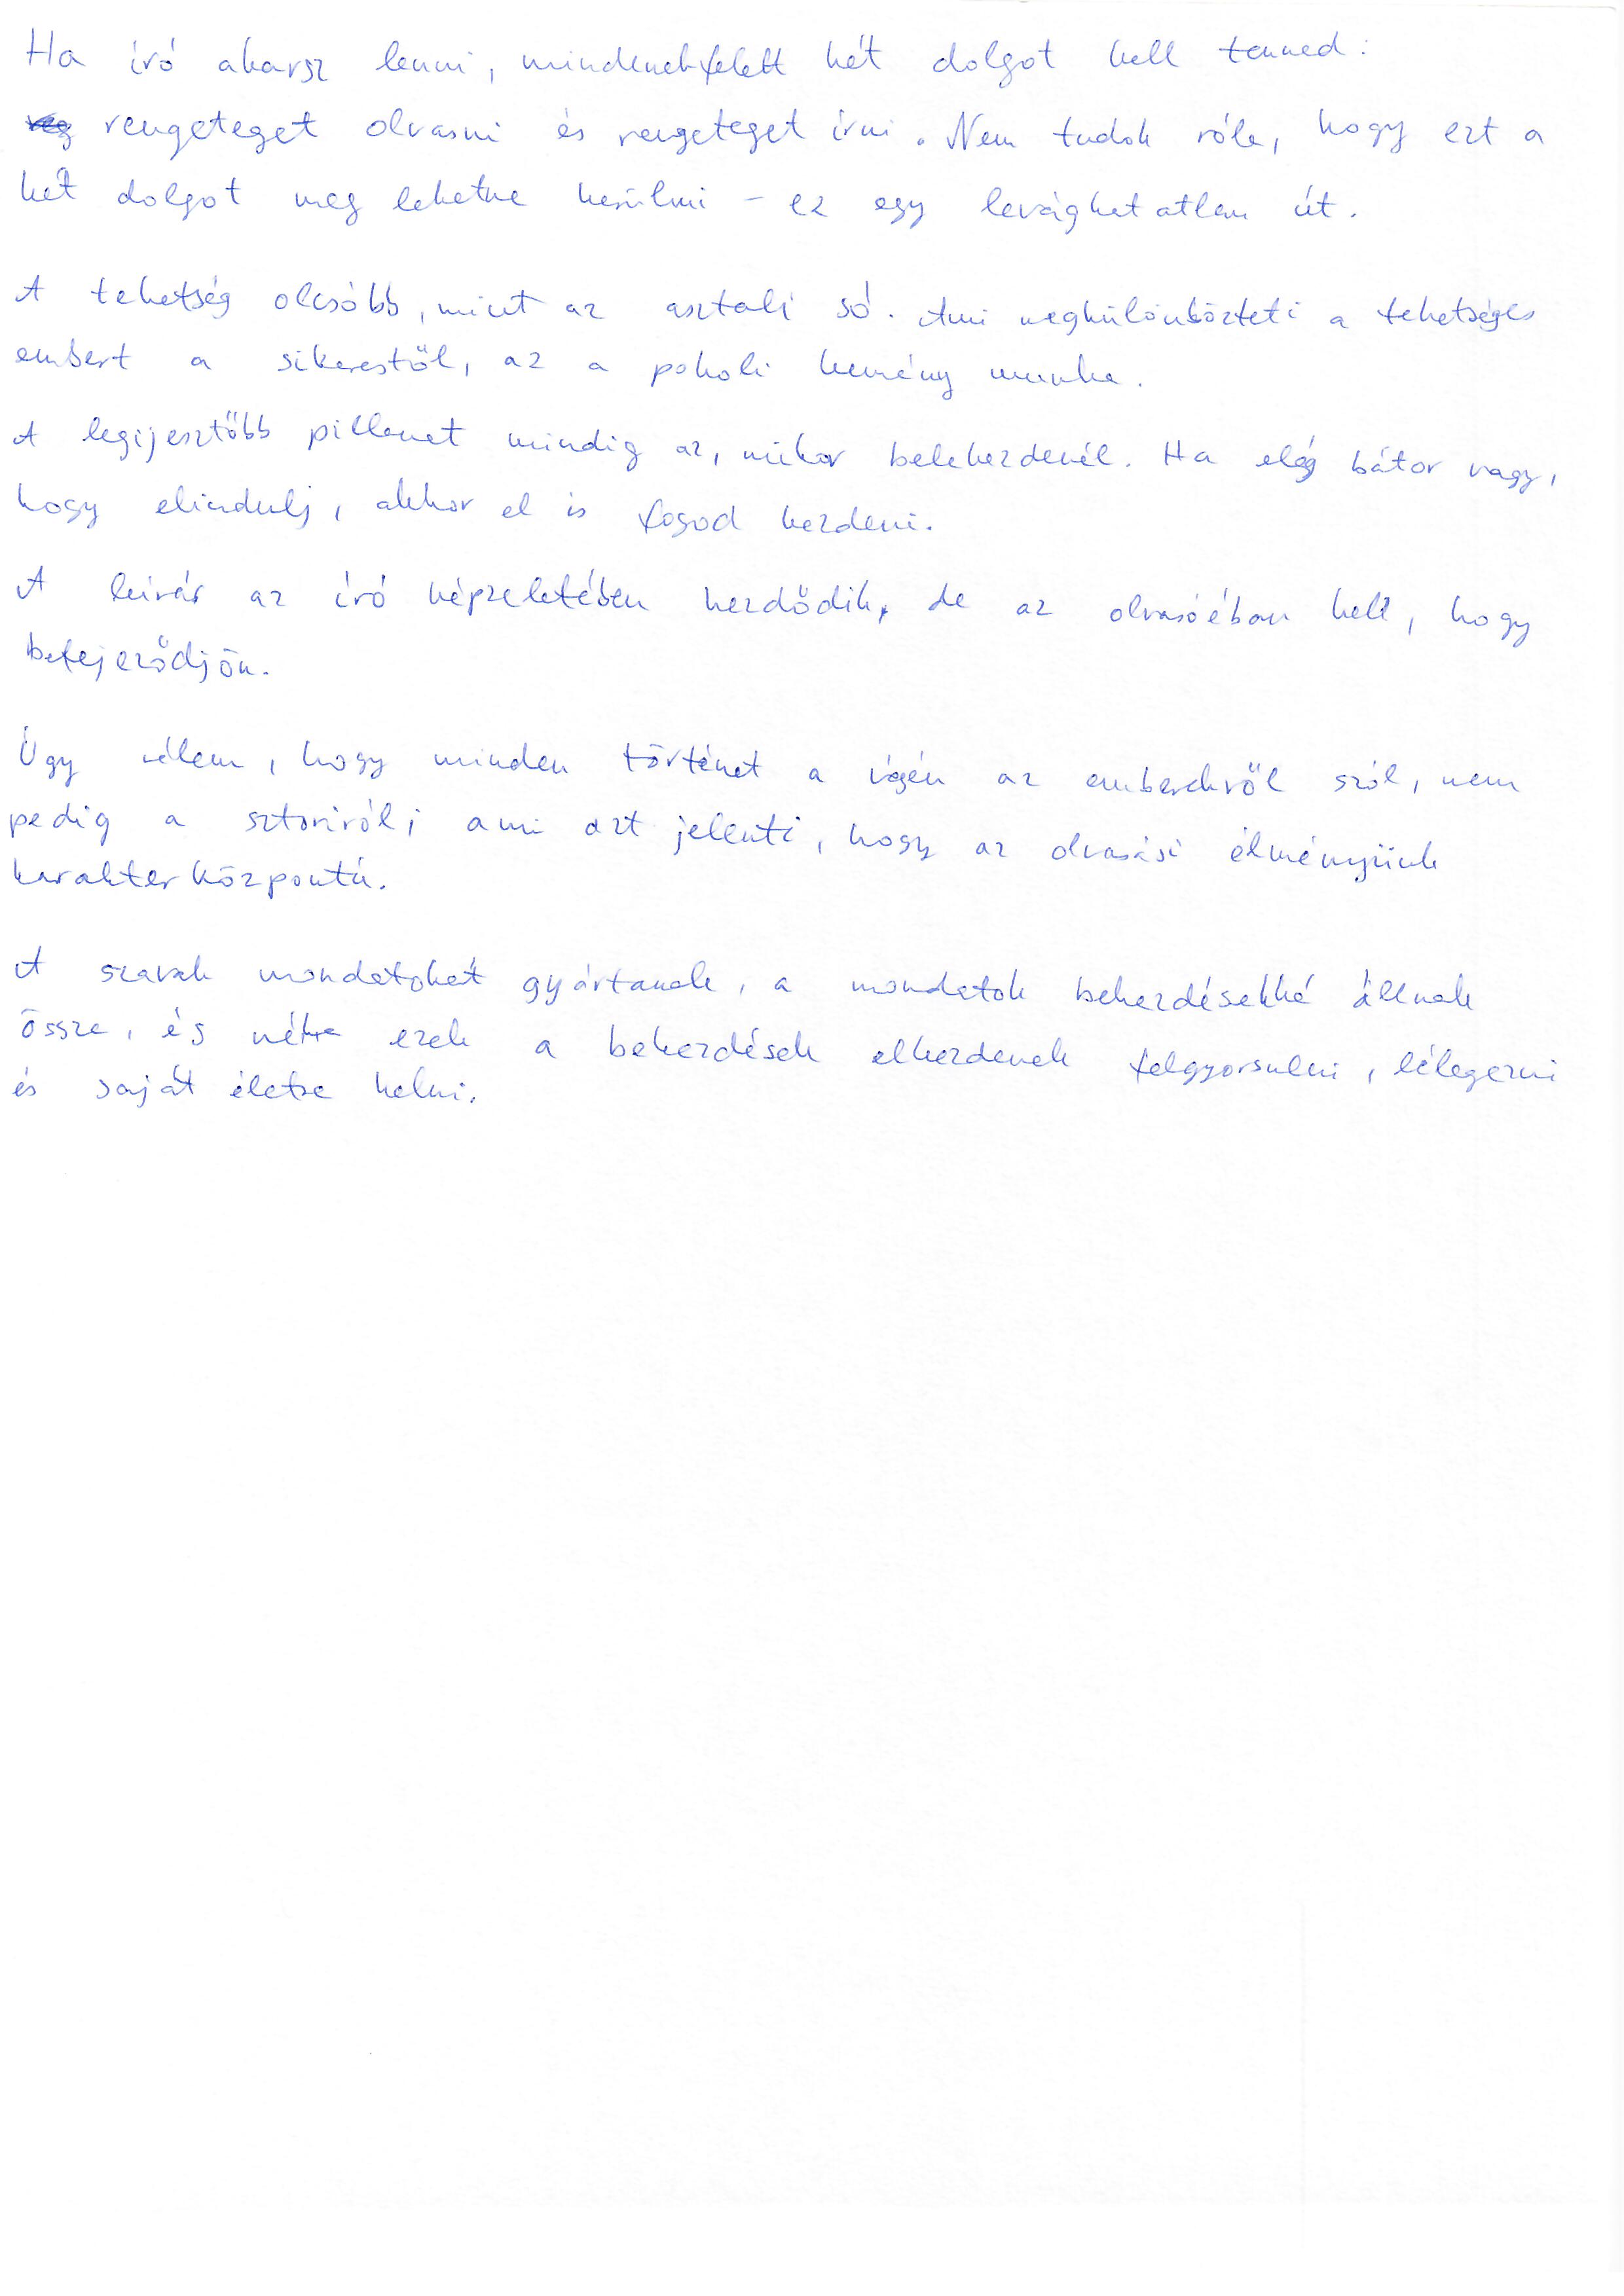 Ha író akarsz lenni, mindenekfelett két dolgot kell tenned:
rengeteget olvasni és rengeteget írni. Nem tudok róla, hogy ezt a
két dolgot meg lehetne kerülni - ez egy levághatatlan út.
A tehetség olcsóbb, mint az asztali só. Ami megkülönbözteti a tehetséges
embert a sikerestől, az a pokoli kemény munka.
A legijesztőbb pillanat mindig az, mikor belekezdenél. Ha elég bátor vagy,
hogy elindulj, akkor el is fogod kezdeni.
A leírás az író képzeletében kezdődik, de az olvasóéban kell, hogy
befejeződjön.
Úgy vélem, hogy minden történet a végén az emberekről szól, nem
pedig a sztoriról; ami azt jelenti, hogy az olvasási élményünk
karakterközpontú.
A szavak mondatokat gyártanak, a mondatok bekezdésekké állnak
össze, és néha ezek a bekezdések elkezdenek felgyorsulni, lélegezni
és saját életre kelni.